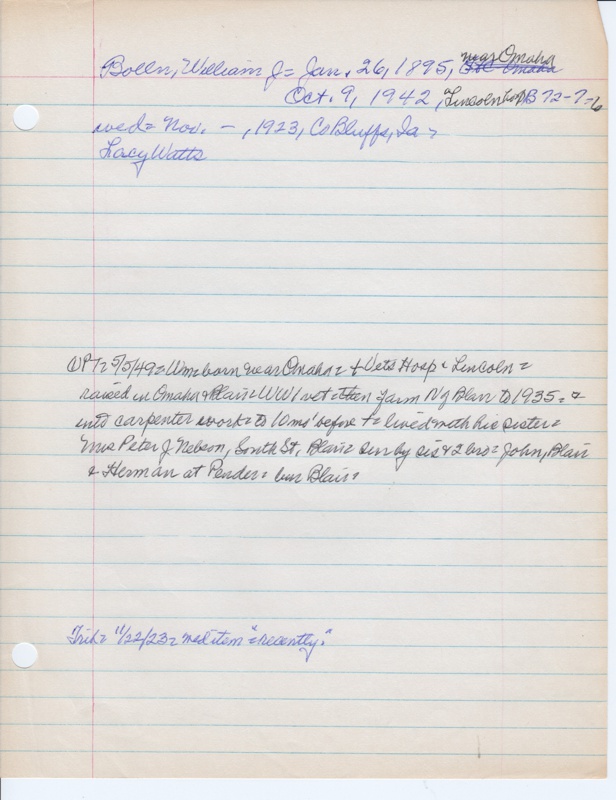 Bolln, William J = Jan. 26, 1895, near Omaha
Oct. 9, 1942, Lincoln hosp B 72-7-6
wed = Nov. -, 1923, Co Bluffs, Ia =
Lacy Watts
5/5/49 = Wm = born near Omaha = + Vets Hosp Lincoln =
raised in Omaha & Blair = WW1 vet = then farm N of Blair to 1935 = &
into carpenter work = to 10 ms' before + = lived with his sister =
Mrs Peter J. Nelson, South St, Blair = sur by sis & 2 bro = John, Blair
& Herman at Pender = bur Blair =
Trib = 11/22/23 = wed item = "recently."